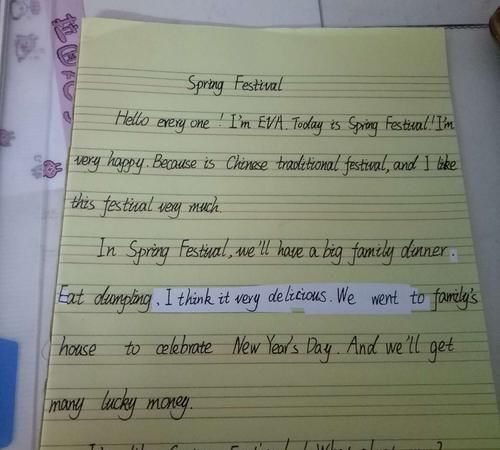 Spring Festival
Hello every one! I'm EVA. Today is Spring Festival! I'm
very happy. Because is Chinese traditional festival, and I like
this festival very much.
In Spring Festival, we'll have a big family dinner.
Eat dumpling. I think it very delicious. We went to family's
house to celebrate New Year's Day. And we'll get
many lucky money.